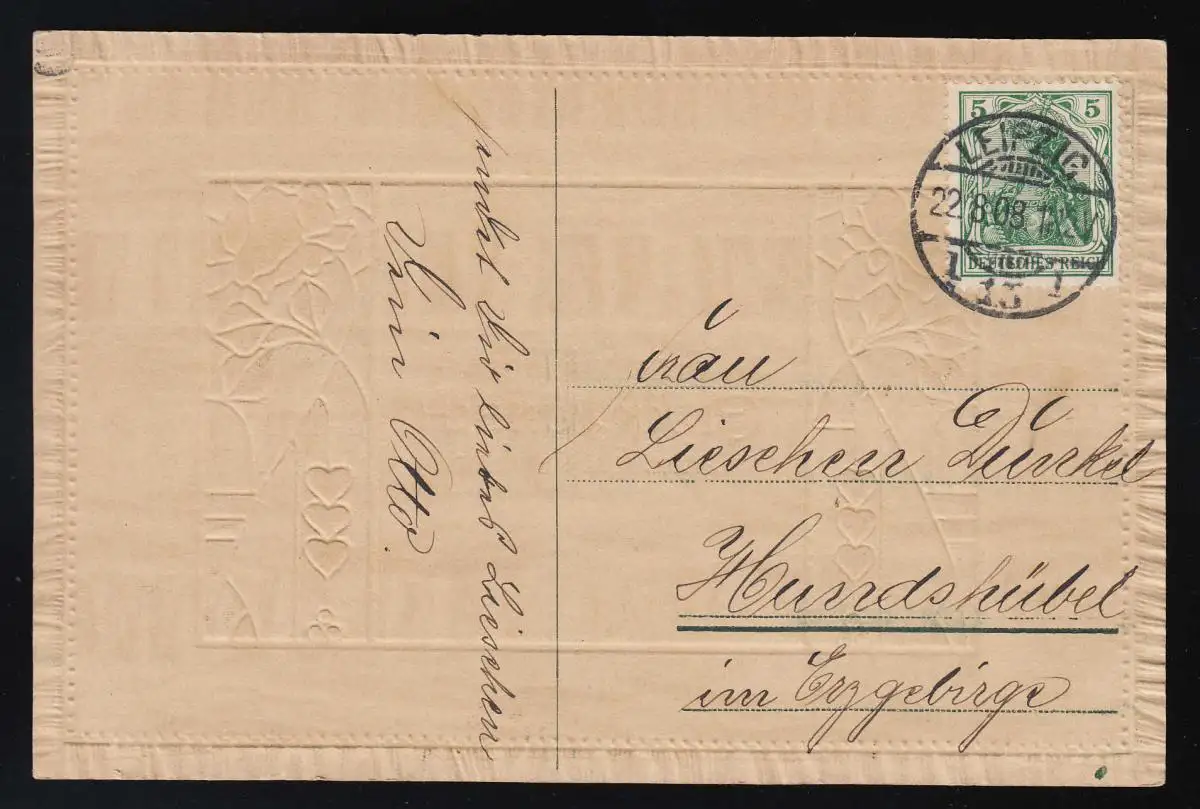 sendet Dir liebes Lieschen
Dein Otto.
5 5
DEUTSCHES REICH
LEIPZIG
22.8.08.
13
Frau
Lieschen Dunkel
Hundshübel
im Erzgebirge